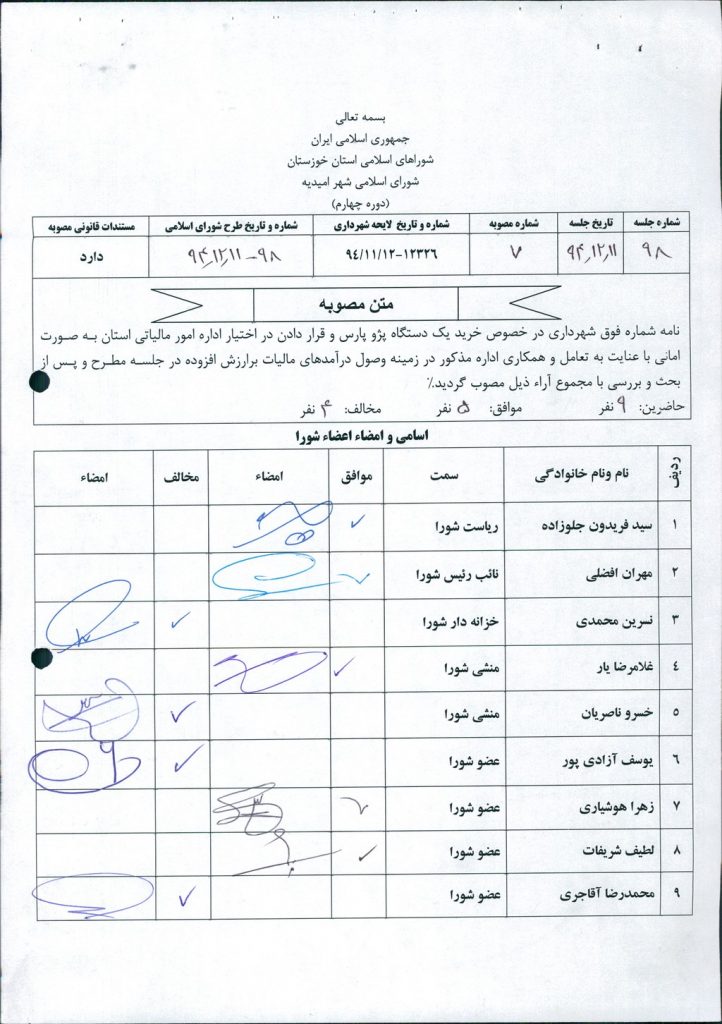 بسمه تعالی
جمهوری اسلامی ایران
شوراهای اسلامی استان خوزستان
شورای اسلامی شهر امیدیه
(دوره چهارم)
شماره جلسه تاریخ جلسه شماره مصوبه شماره و تاریخ لایحه شهرداری شماره و تاریخ طرح شورای اسلامی مستندات قانونی مصوبه
۹۸ ۹۴٫۱۲٫۱۱ ۷ ۹٤/۱۱/۱۲-۱۲۳۲٦ ۹۸-۹۴٫۱۲٫۱۱ دارد
متن مصوبه
نامه شماره فوق شهرداری در خصوص خرید یک دستگاه پژو پارس و قرار دادن در اختیار اداره امور مالیاتی استان به صورت
امانی با عنایت به تعامل و همکاری اداره مذکور در زمینه وصول درآمدهای مالیات برارزش افزوده در جلسه مطرح و پس از
بحث و بررسی با مجموع آراء ذیل مصوب گردید.٪
حاضرین: ۹ نفر موافق: ۵ نفر مخالف: ۴ نفر
اسامی و امضاء اعضاء شورا
ردیف نام ونام خانوادگی سمت موافق امضاء مخالف امضاء
۱ سید فریدون جلوزاده ریاست شورا ✓
۲ مهران افضلی نائب رئیس شورا ✓
۳ نسرین محمدی خزانه دار شورا ✓
٤ غلامرضا یار منشی شورا ✓
۵ خسرو ناصریان منشی شورا ✓
٦ یوسف آزادی پور عضو شورا ✓
۷ زهرا هوشیاری عضو شورا ✓
۸ لطیف شریفات عضو شورا ✓
۹ محمدرضا آقاجری عضو شورا ✓